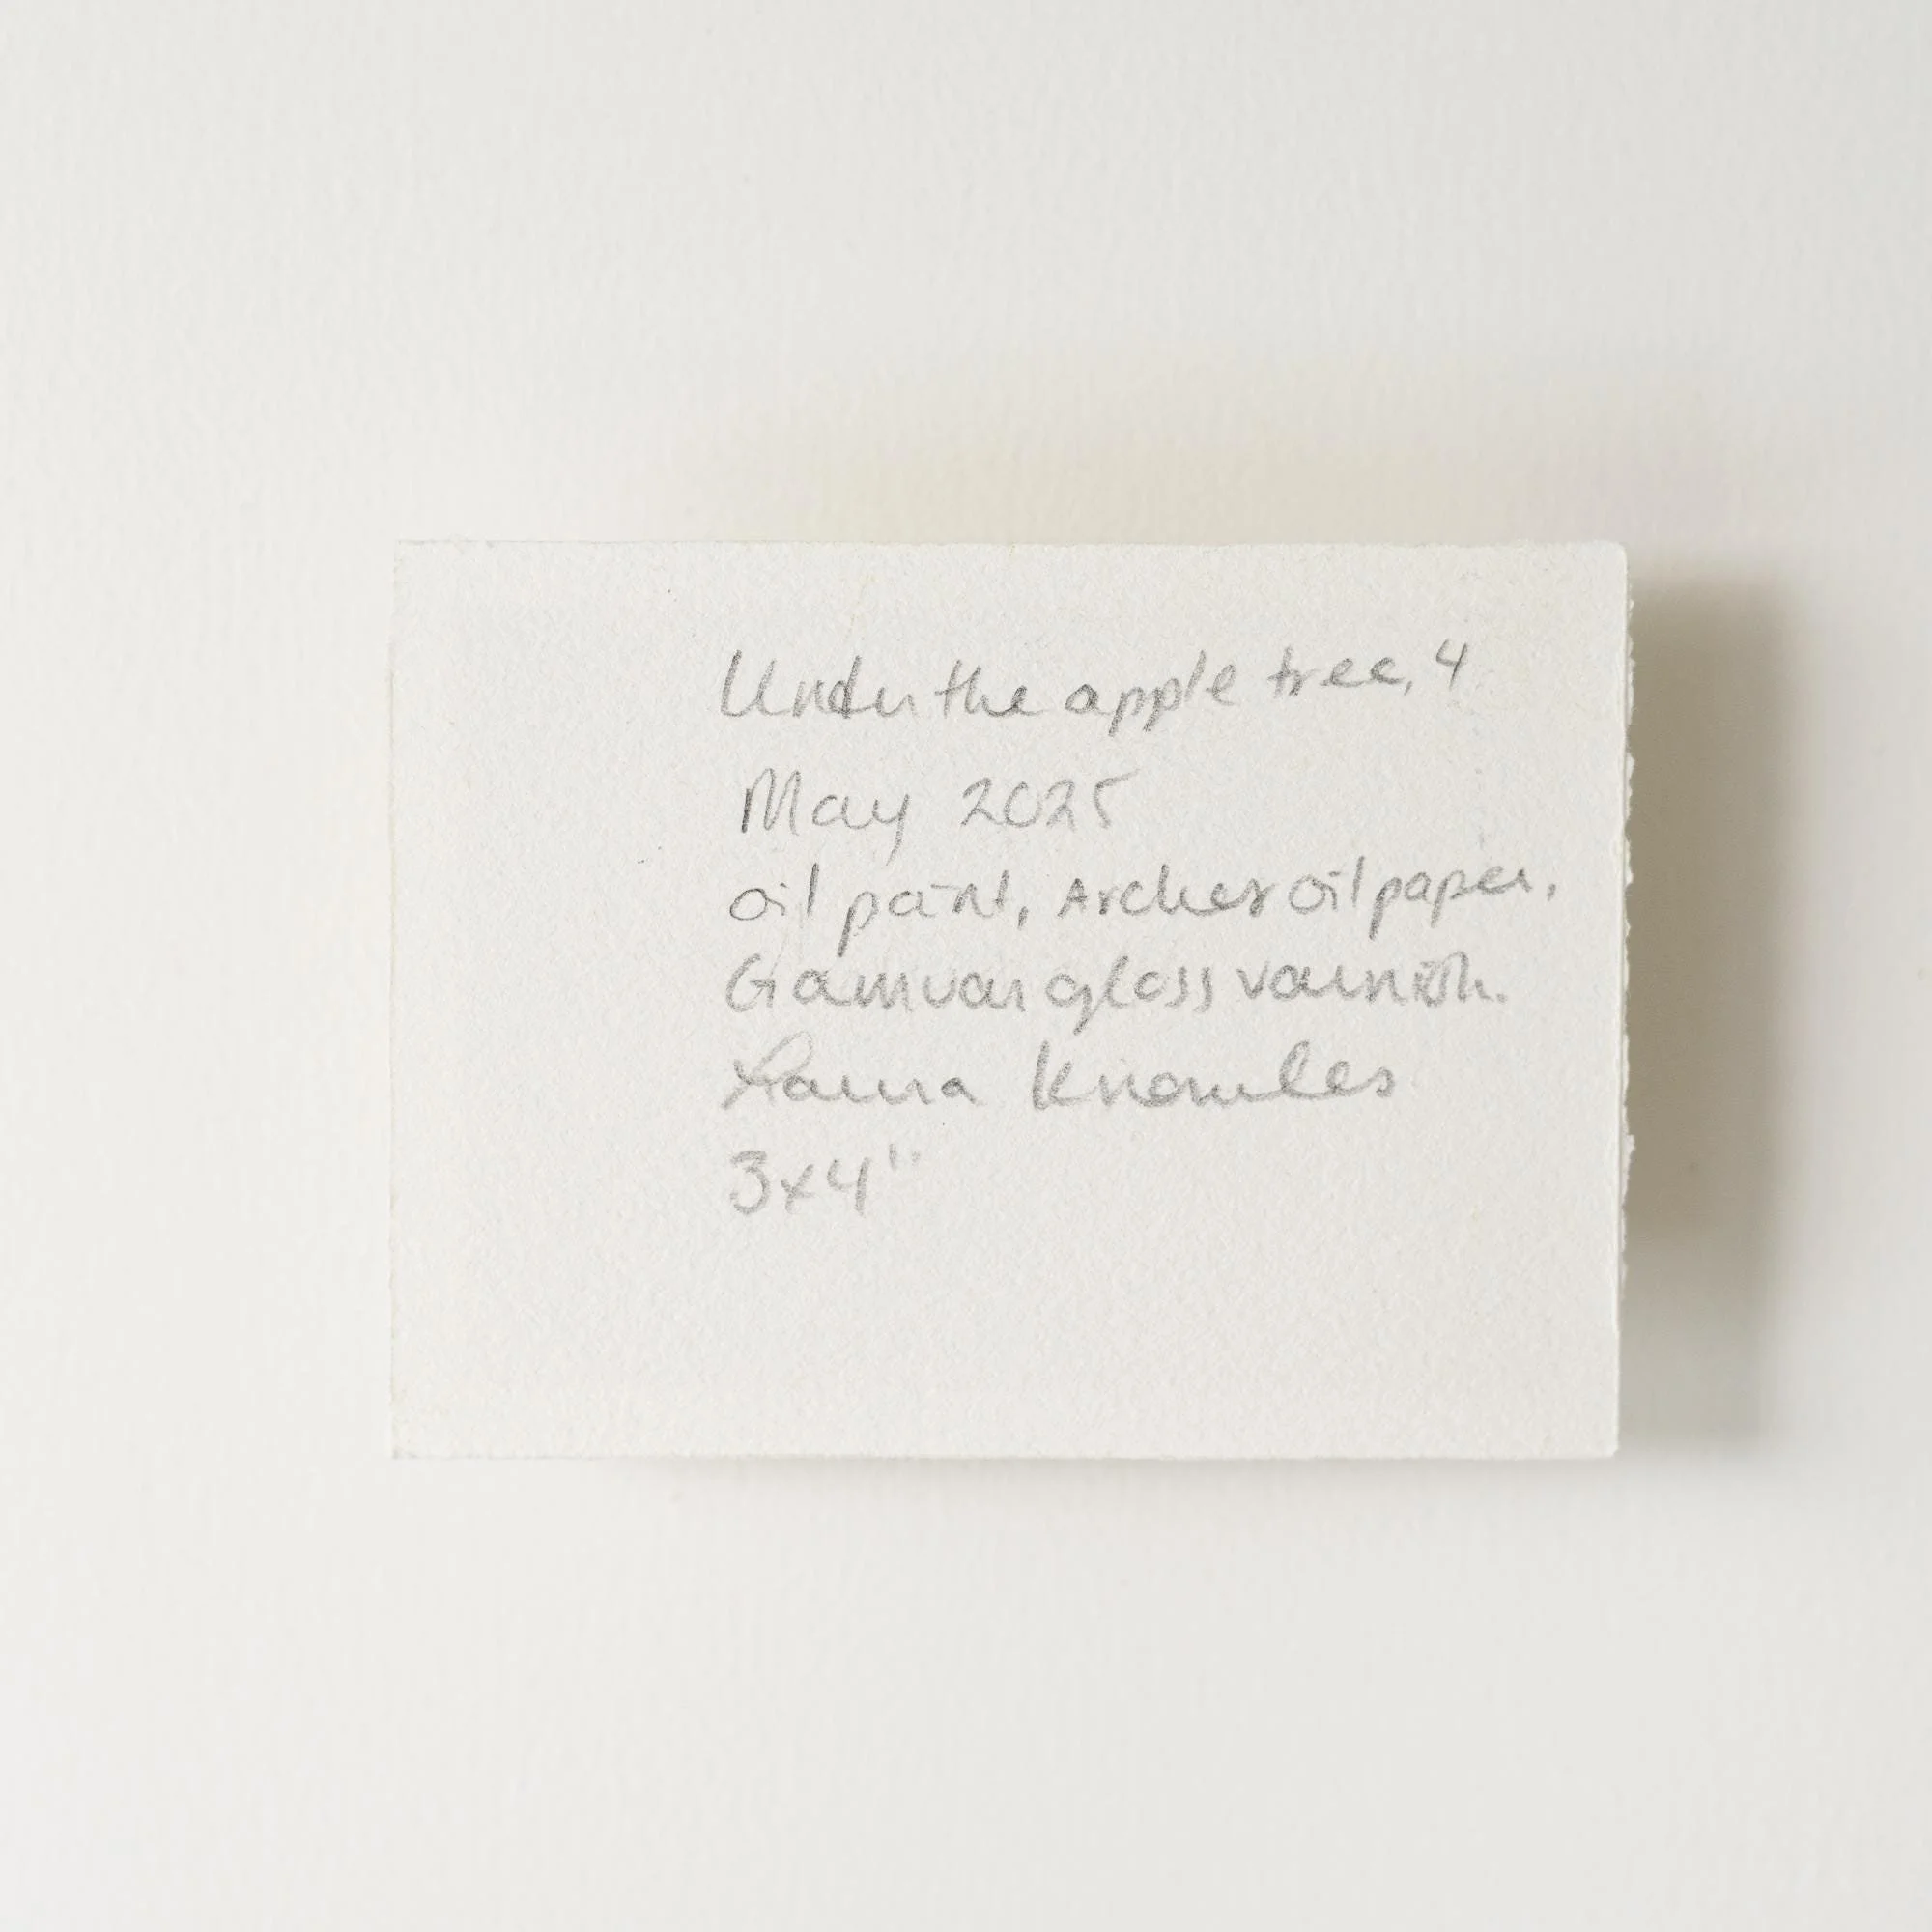 Under the apple tree, 4
May 2025
oil paint, Arches oil paper,
Gamvar gloss varnish.
Laura Knowles
3x4"